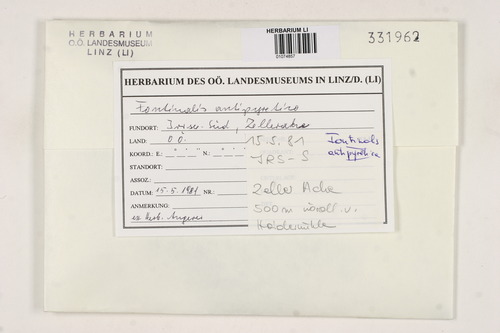 HERBARIUM
O.Ö. LANDESMUSEUM
LINZ (LI)
HERBARIUM LI
01074857
331962
HERBARIUM DES OÖ. LANDESMUSEUMS IN LINZ/D. (LI)
Fontinalis antipyretica
FUNDORT: Irrsee-Süd, Zellerache
LAND: OÖ. 15.5.81
KOORD.: E: ° ' " N: ° JRS-S
STANDORT:
ASSOZ.:
DATUM: 15.5.1981 NR.:
ANMERKUNG:
ex herb.
Fontinalis
antipyretica
Zeller Ache
500m nördl. v.